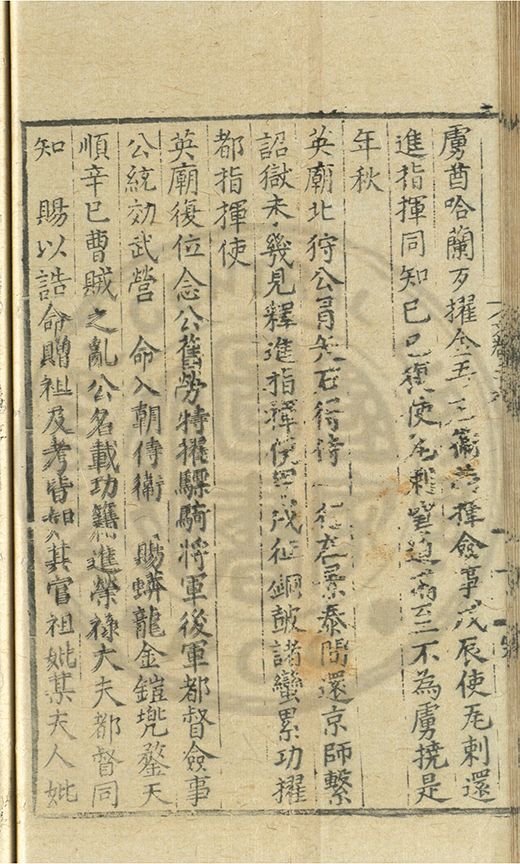 虜酋哈蘭歹擢金吾左衛指揮僉事戊辰使瓦剌還
進指揮同知己巳復使瓦剌不為虜撓是
年秋
英廟北狩公冒矢石得侍景泰間還京師繫
詔獄未幾見釋進指揮使甲戌征銅皷諸蠻累功擢
都指揮使
英廟復位念公舊勞特擢驃騎將軍後軍都督僉事
公統効武營 命入朝侍衛 賜蟒龍金鎧兠鍪天
順辛巳曹賊之亂公名載功籍進榮禄大夫都督同
知 賜以誥命贈祖及考皆如其官祖妣某夫人妣